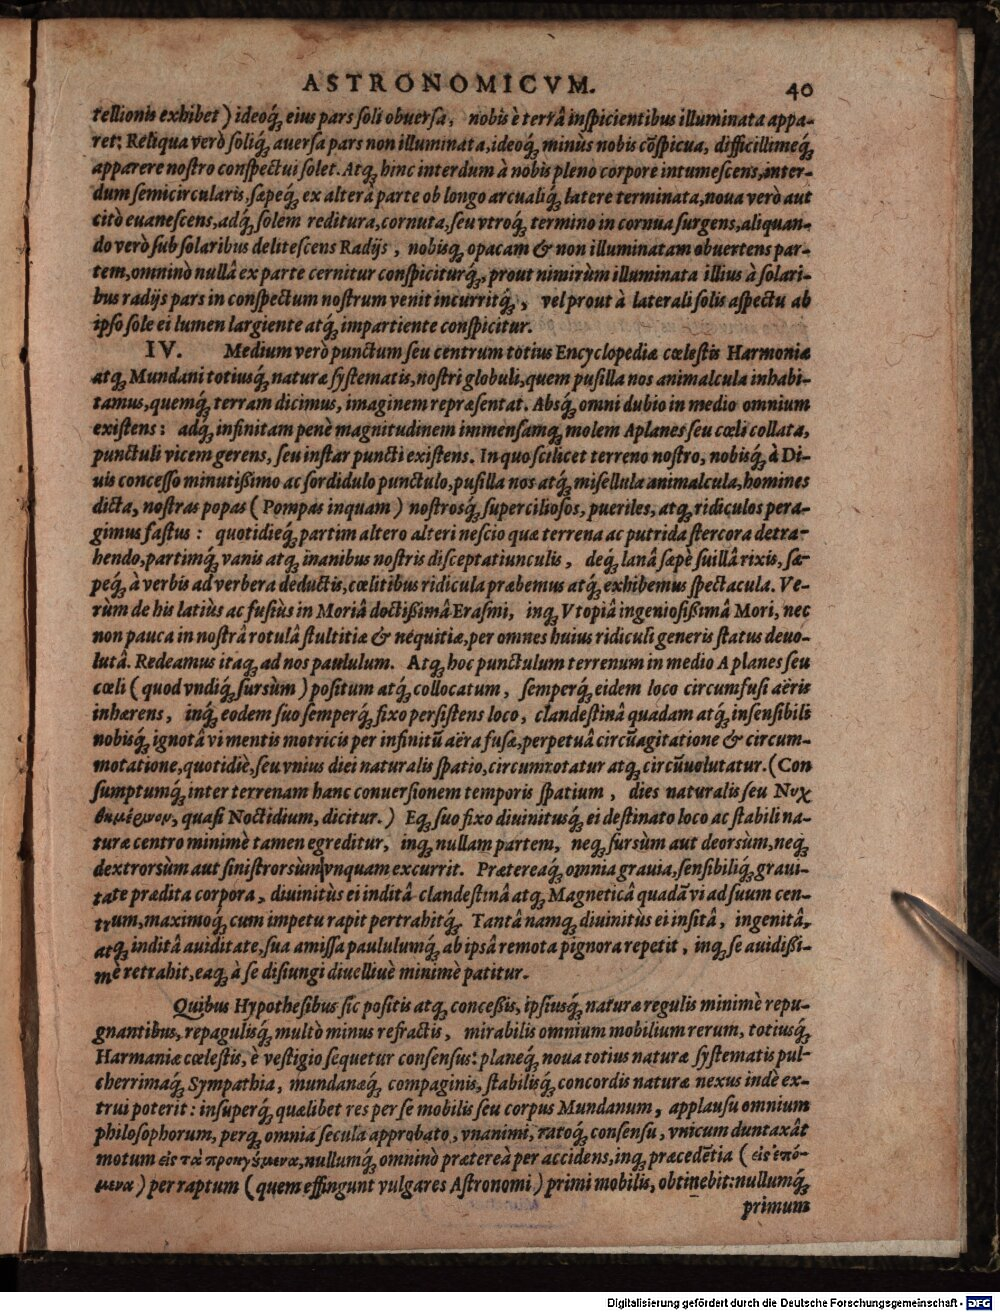 ASTRONOMICVM. 40
tellionis exhibet) ideoq́ꝫ eius pars soli obuersa, nobis è terrâ inspicientibus illuminata appa-
ret: Reliqua verò soliq́ꝫ auersa pars non illuminata, ideoq́ꝫ minùs nobis cõspicua, difficillimeq́ꝫ
apparere nostro conspectui solet. Atq́ꝫ hinc interdum à nobis pleno corpore intumescens, inter-
dum semicircularis, sæpeq́ꝫ ex alterâ parte ob longo arcualiq́ꝫ latere terminata, noua verò aut
citò euanescens, adq́ꝫ solem reditura, cornuta, seu vtroq́ꝫ termino in cornua surgens, aliquan-
do verò sub solaribus delitescens Radijs, nobisq́ꝫ opacam & non illuminatam obuertens par-
tem, omninò nullâ ex parte cernitur conspiciturq́ꝫ, prout nimirùm illuminata illius à solari-
bus radijs pars in conspectum nostrum venit incurritq́ꝫ, vel prout à laterali solis aspectu ab
ipso sole ei lumen largiente atq́ꝫ impartiente conspicitur.
IV. Medium verò punctum seu centrum totius Encyclopediæ cœlestis Harmoniæ
atq́ꝫ Mundani totiusq́ꝫ naturæ systematis, nostri globuli, quem pusilla nos animalcula inhabi-
tamus, quemq́ꝫ terram dicimus, imaginem repræsentat. Absq́ꝫ omni dubio in medio omnium
existens: adq́ꝫ infinitam penè magnitudinem immensamq́ꝫ molem Aplanes seu cœli collata,
punctuli vicem gerens, seu instar puncti existens. In quo scilicet terreno nostro, nobisq́ꝫ à Di-
uis concesso minutißimo ac sordidulo punctulo, pusilla nos atq́ꝫ misellula animalcula, homines
dicta, nostras popas (Pompas inquam) nostrosq́ꝫ superciliosos, pueriles, atq́ꝫ ridiculos pera-
gimus fastus: quotidieq́ꝫ partim altero alteri nescio quæ terrena ac putrida stercora detra-
hendo, partimq́ꝫ vanis atq́ꝫ inanibus nostris disceptatiunculis, deq́ꝫ lanâ sæpè suillâ rixis, sæ-
peq́ꝫ à verbis ad verbera deductis, cœlitibus ridicula præbemus atq́ꝫ exhibemus spectacula. Ve-
rùm de his latiùs ac fusiùs in Moriâ doctißimâ Erasmi, inq́ꝫ Vtopiâ ingeniosißimâ Mori, nec
non pauca in nostrâ rotulâ stultitiæ & nequitiæ, per omnes huius ridiculi generis status deuo-
lutâ. Redeamus itaq́ꝫ ad nos paululum. Atq́ꝫ hoc punctulum terrenum in medio Aplanes seu
cœli (quod vndiq́ꝫ sursùm) positum atq́ꝫ collocatum, semperq́ꝫ eidem loco circumfusi aëris
inhærens, inq́ꝫ eodem suo semperq́ꝫ fixo persistens loco, clandestinâ quadam atq́ꝫ insensibili
nobisq́ꝫ ignotâ vi mentis motricis per infinitũ aëra fusæ, perpetuâ circũagitatione & circum-
motatione, quotidiè, seu vnius diei naturalis spatio, circumrotatur atq́ꝫ circũuolutatur. (Con
sumptumq́ꝫ inter terrenam hanc conuersionem temporis spatium, dies naturalis seu Νυχ
θημέρινον, quasi Noctidium, dicitur.) Eq́ꝫ suo fixo diuinitusq́ꝫ ei destinato loco ac stabili na-
turæ centro minimè tamen egreditur, inq́ꝫ nullam partem, neq́ꝫ sursùm aut deorsùm, neq́ꝫ
dextrorsùm aut sinistrorsùm vnquam excurrit. Prætereaq́ꝫ omnia grauia, sensibiliq́ꝫ graui-
tate prædita corpora, diuinitùs ei inditâ clandestinâ atq́ꝫ Magneticâ quadã vi ad suum cen-
trum, maximoq́ꝫ cum impetu rapit pertrahitq́ꝫ. Tantâ namq́ꝫ diuinitùs ei insitâ, ingenitâ,
atq́ꝫ inditâ auiditate, sua amissa paululumq́ꝫ ab ipsâ remota pignora repetit, inq́ꝫ se auidißi-
mè retrahit, eaq́ꝫ à se disiungi diuelliuè minimè patitur.
Quibus Hypothesibus sic positis atq́ꝫ conceßis, ipsiusq́ꝫ naturæ regulis minimè repu-
gnantibus, repagulisq́ꝫ multò minus refractis, mirabilis omnium mobilium rerum, totiusq́ꝫ
Harmaniæ cœlestis, è vestigio sequetur consensus: planeq́ꝫ noua totius naturæ systematis pul-
cherrimaq́ꝫ Sympathia, mundanæq́ꝫ compaginis, stabilisq́ꝫ concordis naturæ nexus indè ex-
trui poterit: insuperq́ꝫ quælibet res per se mobilis seu corpus Mundanum, applausu omnium
philosophorum, perq́ꝫ omnia secula approbato, vnanimi, ratoq́ꝫ consensu, vnicum duntaxât
motum εἰς τὰ προηγȣ́μενα, nullumq́ꝫ omninò prætereà per accidens, inq́ꝫ præcedẽtia (εἰς ἑπό-
μενα) per raptum (quem effingunt vulgares Astronomi) primi mobilis, obtinebit: nullumq́ꝫ
primum
Digitalisierung gefördert durch die Deutsche Forschungsgemeinschaft - DFG